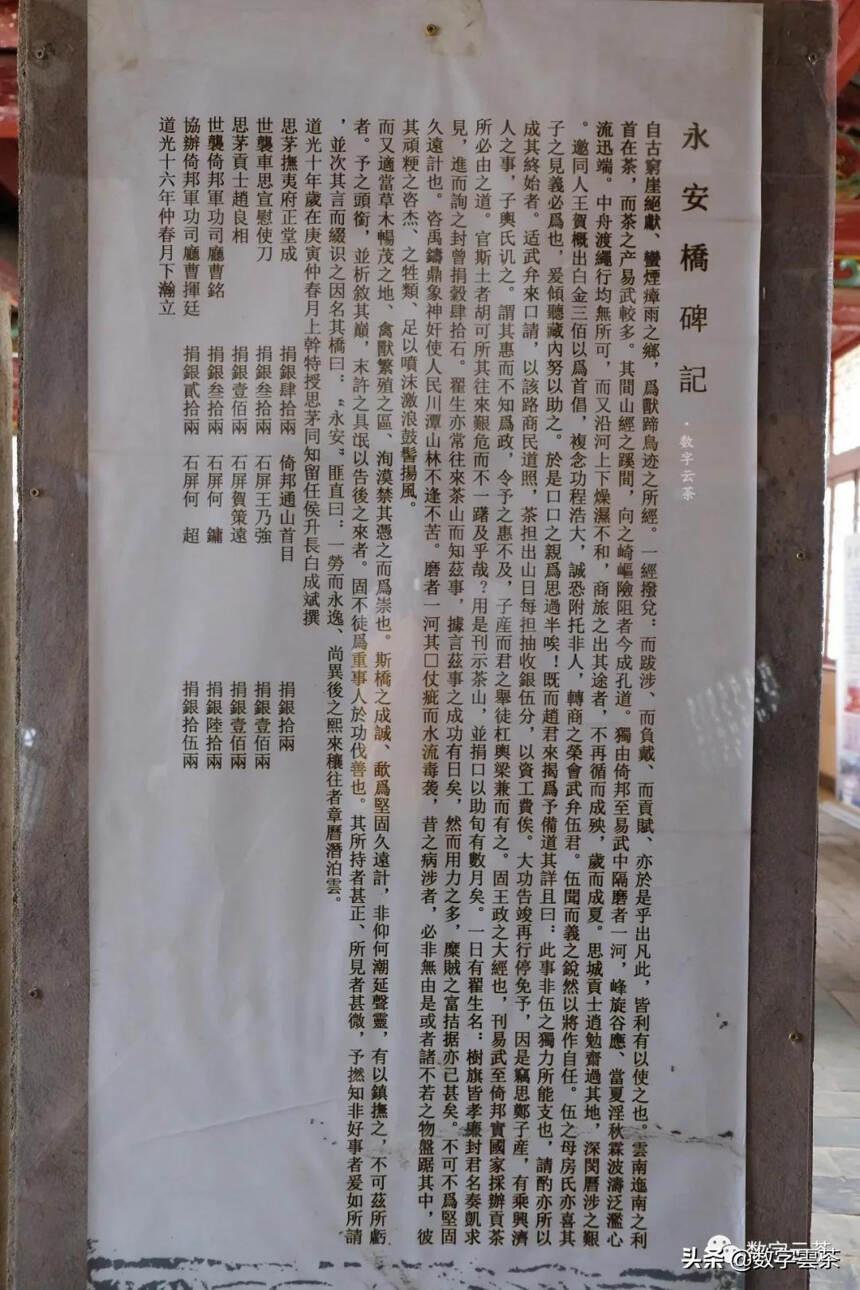 永安橋碑記
·数字云茶
自古窮崖絕獻、蠻煙瘴雨之鄉，爲獸蹄鳥迹之所經。一經撥兌：而跋涉、而負戴、而貢賦、亦於是乎出凡此，皆利有以使之也。雲南迤南之利
首在茶，而茶之产易武較多。其間山經之蹊間，向之崎嶇險阻者今成孔道。獨由倚邦至易武中隔磨者一河，峰旋谷應、當夏淫秋霖波濤泛濫心
流迅端。中舟渡繩行均無所可，而又沿河上下燥濕不和，商旅之出其途者，不再循而成殃，歲而成夏。思城貢士逍勉齋過其地，深閔曆涉之艱
。邀同人王賀概出白金三佰以爲首倡，複念功程浩大，誠恐附托非人，轉商之榮會武弁伍君。伍聞而義之銳然以將作自任。伍之母房氏亦喜其
子之見義必爲也，爰傾聽藏內努以助之。於是口口之親爲思過半唉！既而趙君來揭爲予備道其詳且曰：此事非伍之獨力所能支也，請酌亦所以
成其終始者。适武弁來口請，以該路商民道照，茶担出山日每担抽收銀伍分，以資工費俟。大功告竣再行停免予，因是竊思鄭子産，有乘興濟
人之事，子輿氏讥之。謂其惠而不知爲政，令予之惠不及，子産而君之舉徒杠輿梁兼而有之。固王政之大經也，刊易武至倚邦實國家採辦貢茶
所必由之道。官斯土者胡可所其往來艱危而不一躇及乎哉？用是刊示茶山，並捐口以助旬有數月矣。一日有翟生名：樹旗皆孝廉封君名奏凱求
見，進而詢之封曾捐榖肆拾石。翟生亦常往來茶山而知茲事，據言茲事之成功有日矣，然而用力之多，糜賊之富拮据亦己甚矣。不可不爲堅固
久遠計也。咨禹鑄鼎象神奸使人民川潭山林不逢不苦。磨者一河其口仗疵而水流毒袭，昔之病涉者，必非無由是或者諸不若之物盤踞其中，彼
其頑粳之咎杰、之牲類、足以噴沫激浪鼓髻揚風。
而又適當草木暢茂之地、禽獸繁殖之區、洵漠禁其憑之而爲祟也。斯橋之成誠、歃爲堅固久遠計，非仰何潮延聲靈，有以鎮撫之，不可茲所虧
者。予之頭銜，並析敘其巔，末許之具氓以告後之來者。固不徒爲重事人於功伐善也。其所持者甚正、所見者甚微，予撚知非好事者爰如所請
，並次其言而綴识之因名其橋曰："永安"匪直曰：一勞而永逸、尚異後之熙來穰往者章曆潛泊雲。
道光十年歲在庚寅仲春月上幹特授思茅同知留任侯升長白成斌撰
思茅撫夷府正堂成 捐銀肆拾兩 倚邦通山首目 捐銀拾兩
世襲車思宣慰使刀 捐銀叁拾兩 石屏王乃強 捐銀壹佰兩
思茅貢士趙良相 捐銀壹佰兩 石屏賀策遠 捐銀壹佰兩
世襲倚邦軍功司廳曹銘 捐銀叁拾兩 石屏何 鏞 捐銀陸拾兩
協辦倚邦軍功司廳曹揮廷 捐銀貳拾兩 石屏何 超 捐銀拾伍兩
道光十六年仲春月下瀚立
数字云茶
头条 @数字雲茶